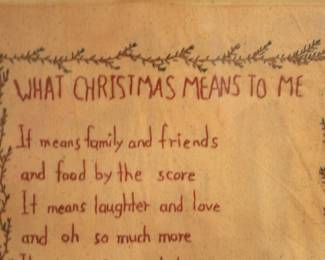 WHAT CHRISTMAS MEANS TO ME
It means family and friends
and food by the score
It means laughter and love
and oh so much more